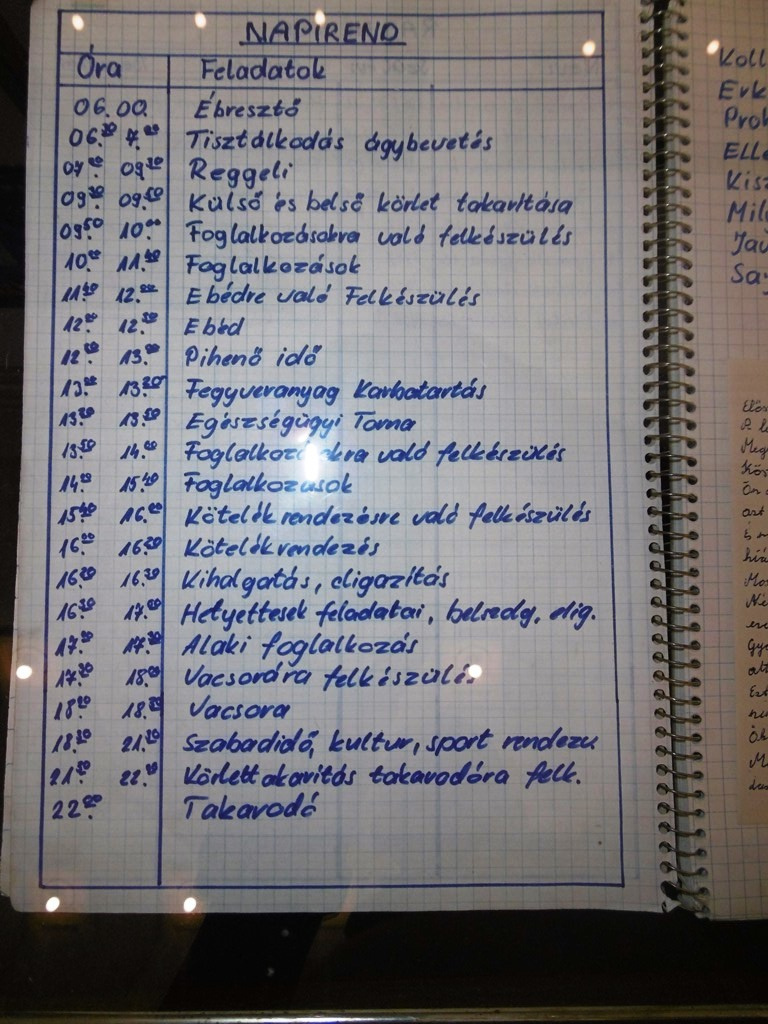 NAPIREND
Óra Feladatok
06.00. Ébresztő
06.30 7.00 Tisztálkodás ágybevetés
07.00 09.30 Reggeli
09.30 09.50 Külső és belső körlet takarítása
09.50 10.00 Foglalkozásokra való felkészülés
10.00 11.40 Foglalkozások
11.40 12.00 Ebédre való Felkészülés
12.00 12.30 Ebéd
13.00 Pihenő idő
13.00 13.20 Fegyveranyag Karbatartás
13.20 13.50 Egészségügyi Torna
13.50 14.00 való felkészülés
14.00 15.40 Foglalkozások
15.40 16.00 Kötelék rendezésre való felkészülés
16.00 16.20 Kötelékrendezés
16.20 16.30 Kihalgatás, eligazítás
16.30 17.00 Helyettesek feladatai, elig.
17.00 17.30 Alaki foglalkozás
17.30 18.00 Vacsorára felkészülés
18.00 18.30 Vacsora
18.30 21.30 Szabadidő, kultur, sport
21.30 22.00 Körlettakarítás takarodóra felk.
22.00 Takarodó